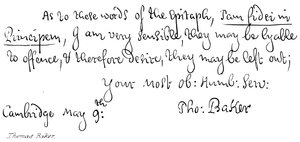 As to these words of the Epitaph, Tam fidei in
Principem, I am very sensible, they may be lyable
to offence, & therefore desire, they may be left out;
Your most ob: Humb: Serv:
Cambridge May 9th: Tho: Baker
Thomas Baker.